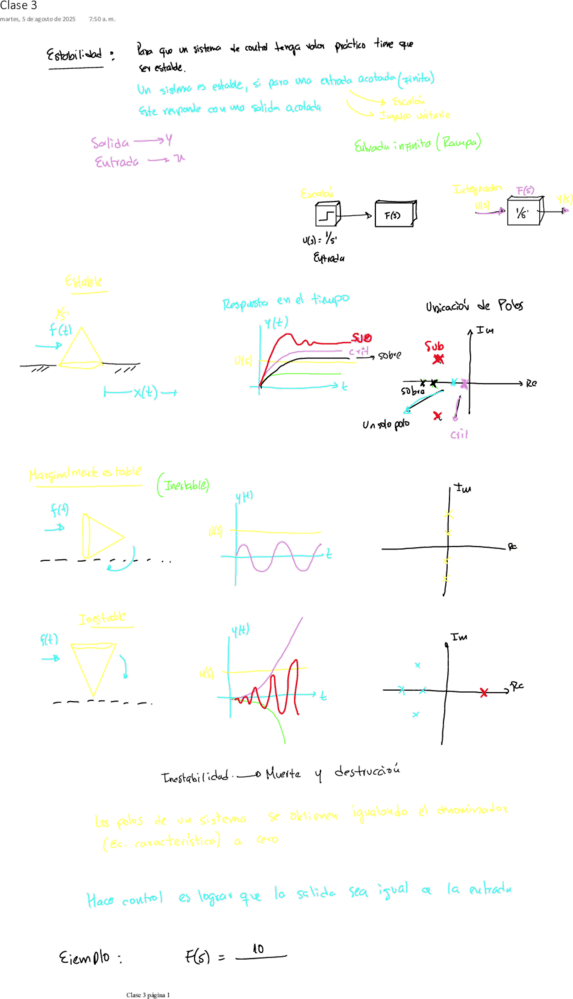 Clase 3
martes, 5 de agosto de 2025 7:50 a. m.
Estabilidad : Para que un sistema de control tenga valor práctico tiene que
ser estable.
Un sistema es estable, si para una entrada acotada (Finita)
Este responde con una salida acotada
Escalón
Impulso unitario
Salida → y
Entrada → u
Entrada infinita (Rampa)
Escalón
F(s)
U(s) = 1/s
Entrada
Integrador
U(s)
F(s)
1/s
Y(s)
Estable
f(t)
x(t)
Respuesta en el tiempo
y(t)
U(s)
sub
crit
sobre
t
Ubicación de Polos
Im
Sub
Re
sobre
Un solo polo
crit
Marginalmente estable
(Inestable)
f(t)
y(t)
t
Im
Re
Inestable
f(t)
y(t)
t
Im
Re
Inestabilidad → Muerte y destrucción
Los polos de un sistema se obtienen igualando el denominador
(Ec. característica) a cero
Hacer control es lograr que la salida sea igual a la entrada
Ejemplo : F(s) = 10
Clase 3 página 1